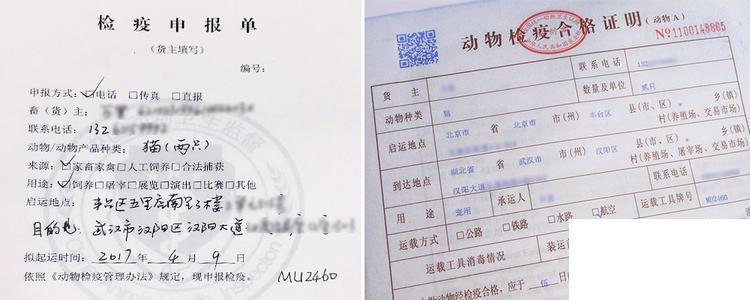 检疫申报单
（货主填写）
编号：
申报方式：☑电话 □传真 □直报
畜（货）主：
联系电话：132
动物/动物产品种类：猫（两只）
来源：☑家畜家禽□人工饲养□合法捕获
用途：☑饲养□屠宰□展览□演出□比赛□其他
启运地点：丰台区五里店南里3楼
目的地：武汉市汉阳区汉阳大道
拟起运时间：2017年4月9日
依照《动物检疫管理办法》规定，现申报检疫。 MU2460
动物检疫合格证明（动物A）
№1100148865
货 主 联系电话 132
动物种类 猫 数量及单位 贰只
启运地点 北京市 省 北京市 市(州) 丰台区 县(市、区) 乡(镇)
村(养殖场、交易市场)
到达地点 湖北省 省 武汉市 市(州) 汉阳区 县(市、区) 乡(镇)
汉阳大道 村(养殖场、屠宰场、交易市场)
用 途 宠用 承运人 联系电话
运载方式 □公路 □铁路 □水路 □航空 运载工具牌号 MU2460
运载工具消毒情况 装运前
动物经检疫合格，应于 伍 日